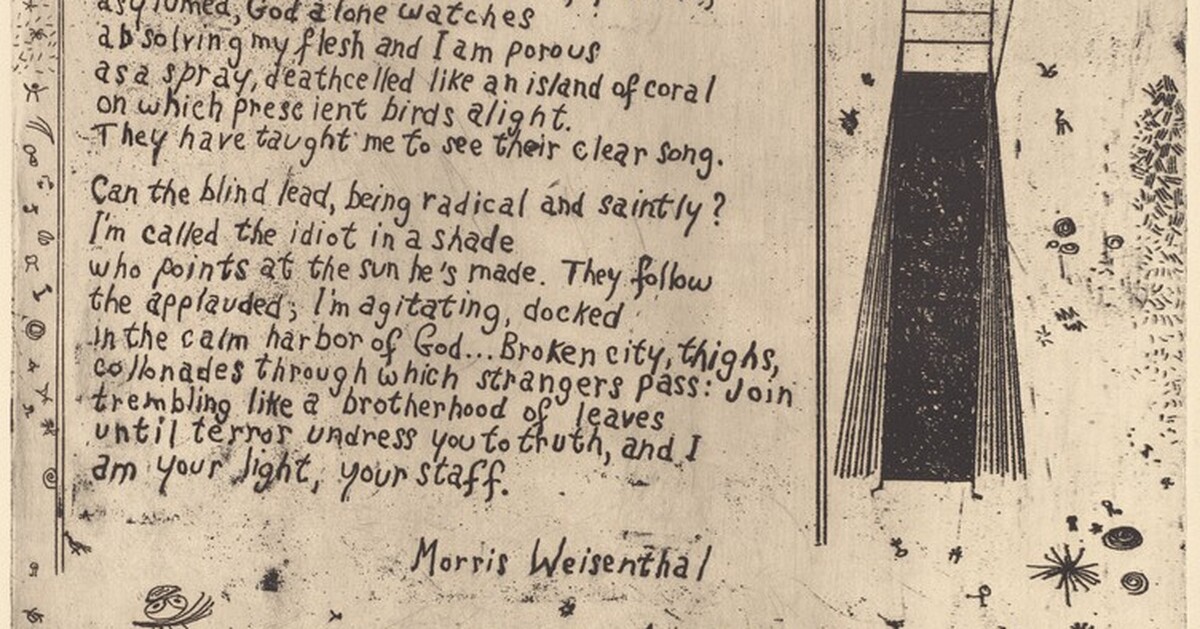 asylumed, God alone watches
absolving my flesh and I am porous
as a spray, deathcelled like an island of coral
on which prescient birds alight.
They have taught me to see their clear song.
Can the blind lead, being radical and saintly?
I'm called the idiot in a shade
who points at the sun he's made. They follow
the applauded; I'm agitating, docked
in the calm harbor of God... Broken city, thighs,
collonades through which strangers pass: Join
trembling like a brotherhood of leaves
until terror undress you to truth, and I
am your light, your staff.
Morris Weisenthal